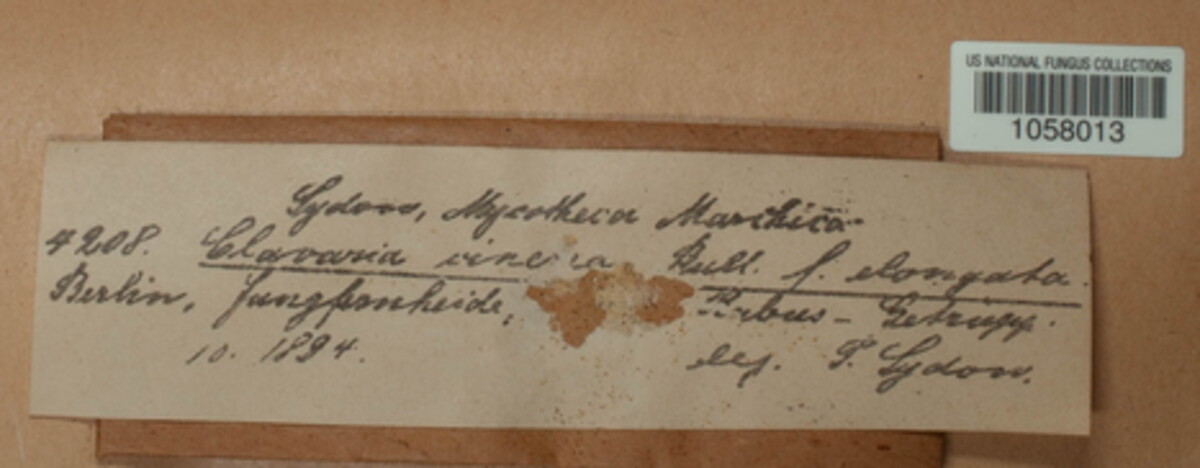 US NATIONAL FUNGUS COLLECTIONS
1058013
Sydow, Mycotheca Marchica
4208. Clavaria cinerea Bull. f. elongata.
Berlin, Jungfernheide, Rubus-Gestrüpp.
10. 1894. leg. P. Sydow.